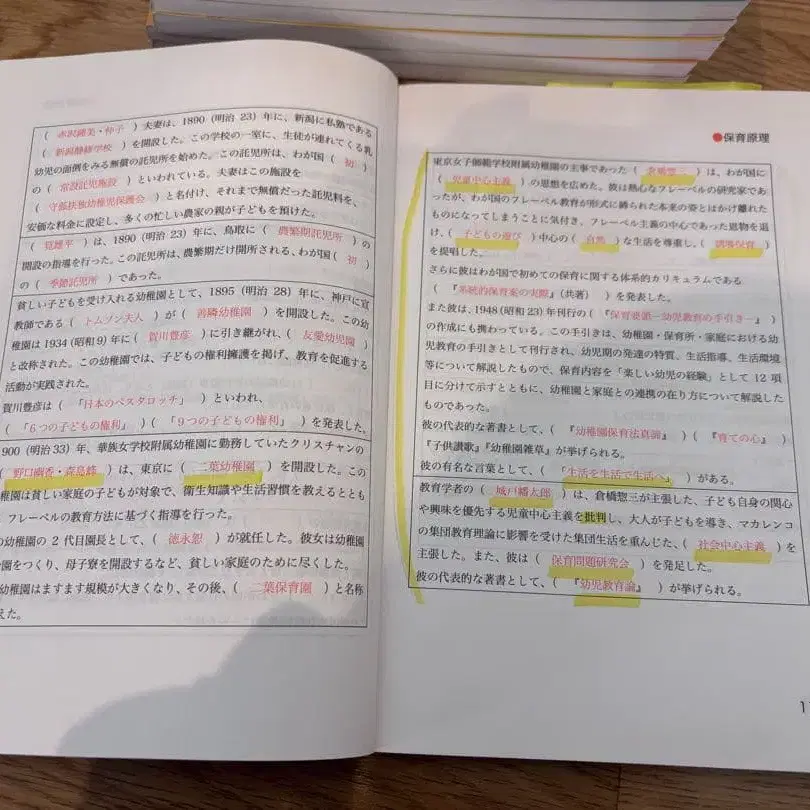 （ 赤沢鍾美・仲子 ）夫妻は、1890（明治 23）年に、新潟に私塾である
（ 新潟静修学校 ）を開設した。この学校の一室に、生徒が連れてくる乳
幼児の面倒をみる無償の託児所を始めた。この託児所は、わが国（ 初 ）
の（ 常設託児施設 ）といわれている。夫妻はこの施設を
（ 守孤扶独幼稚児保護会 ）と名付け、それまで無償だった託児料を、
安価な料金に設定し、多くの忙しい農家の親が子どもを預けた。
（ 筧雄平 ）は、1890（明治 23）年に、鳥取に（ 農繁期託児所 ）の
開設の指導を行った。この託児所は、農繁期だけ開所される、わが国（ 初 ）
の（ 季節託児所 ）であった。
貧しい子どもを受け入れる幼稚園として、1895（明治 28）年に、神戸に宣
教師である（ トムソン夫人 ）が（ 善隣幼稚園 ）を開設した。この幼
稚園は 1934（昭和 9）年に（ 賀川豊彦 ）に引き継がれ、（ 友愛幼児園 ）
と改称された。この幼稚園では、子どもの権利擁護を掲げ、教育を促進する
活動が実践された。
賀川豊彦は（ 「日本のペスタロッチ」 ）といわれ、
（ 「６つの子どもの権利」 ）（ 「９つの子どもの権利」 ）を発表した。
900（明治 33）年、華族女学校附属幼稚園に勤務していたクリスチャンの
（ 野口幽香・森島峰 ）は、東京に（ 二葉幼稚園 ）を開設した。この
稚園は貧しい家庭の子どもが対象で、衛生知識や生活習慣を教えるととも
、フレーベルの教育方法に基づく指導を行った。
の幼稚園の 2 代目園長として、（ 徳永恕 ）が就任した。彼女は幼稚園
園をつくり、母子寮を開設するなど、貧しい家庭のために尽くした。
幼稚園はますます規模が大きくなり、その後、（ 二葉保育園 ）と名称
えた。
●保育原理
東京女子師範学校附属幼稚園の主事であった（ 倉橋惣三 ）は、わが国に
（ 児童中心主義 ）の思想を広めた。彼は熱心なフレーベルの研究家であ
ったが、わが国のフレーベル教育が形式に縛られた本来の姿とはかけ離れた
ものになってしまうことに気付き、フレーベル主義の中心であった恩物を退
け、（ 子どもの遊び ）中心の（ 自然 ）な生活を尊重し、（ 誘導保育 ）
を提唱した。
さらに彼はわが国で初めての保育に関する体系的カリキュラムである
（ 『系統的保育案の実際』（共著） ）を発表した。
また彼は、1948（昭和 23）年刊行の（ 『保育要領－幼児教育の手引き－』 ）
の作成にも携わっている。この手引きは、幼稚園・保育所・家庭における幼
児教育の手引きとして刊行され、幼児期の発達の特質、生活指導、生活環境
等について解説したもので、保育内容を「楽しい幼児の経験」として 12 項
目に分けて示すとともに、幼稚園と家庭との連携の在り方について解説した
ものであった。
彼の代表的な著書として、（ 『幼稚園保育法真諦』 ）（ 『育ての心』 ）
『子供讃歌』『幼稚園雑草』が挙げられる。
彼の有名な言葉として、（ 「生活を生活で生活へ」 ）がある。
教育学者の（ 城戸幡太郎 ）は、倉橋惣三が主張した、子ども自身の関心
や興味を優先する児童中心主義を批判し、大人が子どもを導き、マカレンコ
の集団教育理論に影響を受けた集団生活を重んじた、（ 社会中心主義 ）を
主張した。また、彼は（ 保育問題研究会 ）を発足した。
彼の代表的な著書として、（ 『幼児教育論』 ）が挙げられる。